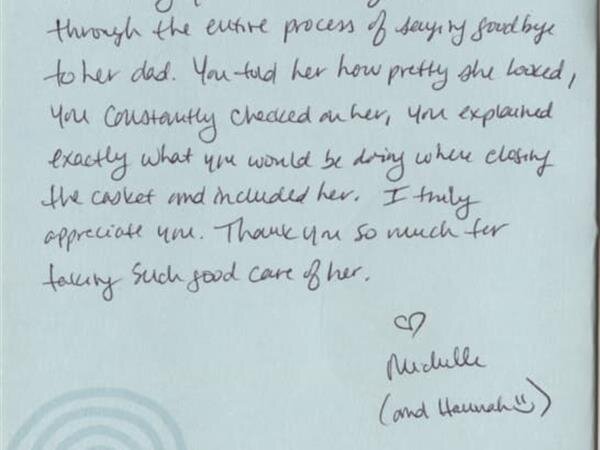 through the entire process of saying goodbye
to her dad. You told her how pretty she looked,
you constantly checked on her, you explained
exactly what you would be doing where closing
the casket and included her. I truly
appreciate you. Thank you so much for
taking such good care of her.
♡
Michelle
(and Hannah☺)